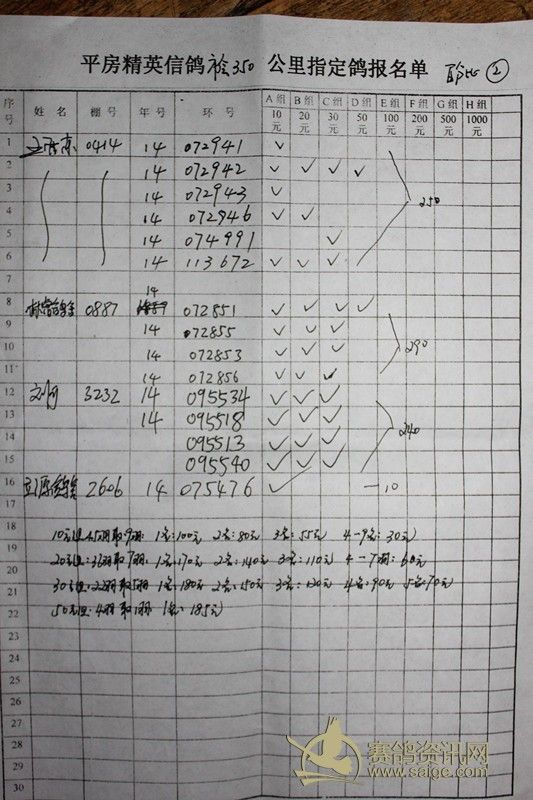 平房精英信鸽 350 公里指定鸽报名单 ②
序号 姓名 棚号 年号 环号 A组10元 B组20元 C组30元 D组50元 E组100元 F组200元 G组500元 H组1000元
1 0414 14 072941 ✓
2 14 072942 ✓ ✓ ✓ ✓
3 14 072943 ✓ 250
4 14 072946 ✓ ✓
5 14 074991 ✓
6 14 113672 ✓ ✓ ✓
7 14
8 0887 072851 ✓ ✓ ✓ ✓
9 14 072855 ✓ ✓ ✓
10 14 072853 ✓ ✓ ✓ 290
11 14 072856 ✓ ✓ ✓
12 3232 14 095534 ✓ ✓ ✓
13 14 095518 ✓ ✓ ✓ 240
14 095513 ✓ ✓ ✓
15 095540 ✓ ✓ ✓
16 2606 14 075476 ✓ —10
17
18 10元组:45羽取9羽: 1名:100元 2名:80元 3名:55元 4-9名:30元)
19
20 20元组:36羽取7羽: 1名:170元 2名:140元 3名:110元 4-7名:60元
21 30元组:22羽取5羽 1名:180元 2名:150元 3名:120元 4名:90元 5名:70元)
22 50元组:4羽取1羽 1名:185元)
23
24
25
26
27
28
29
30
赛鸽资讯网
www.saige.com